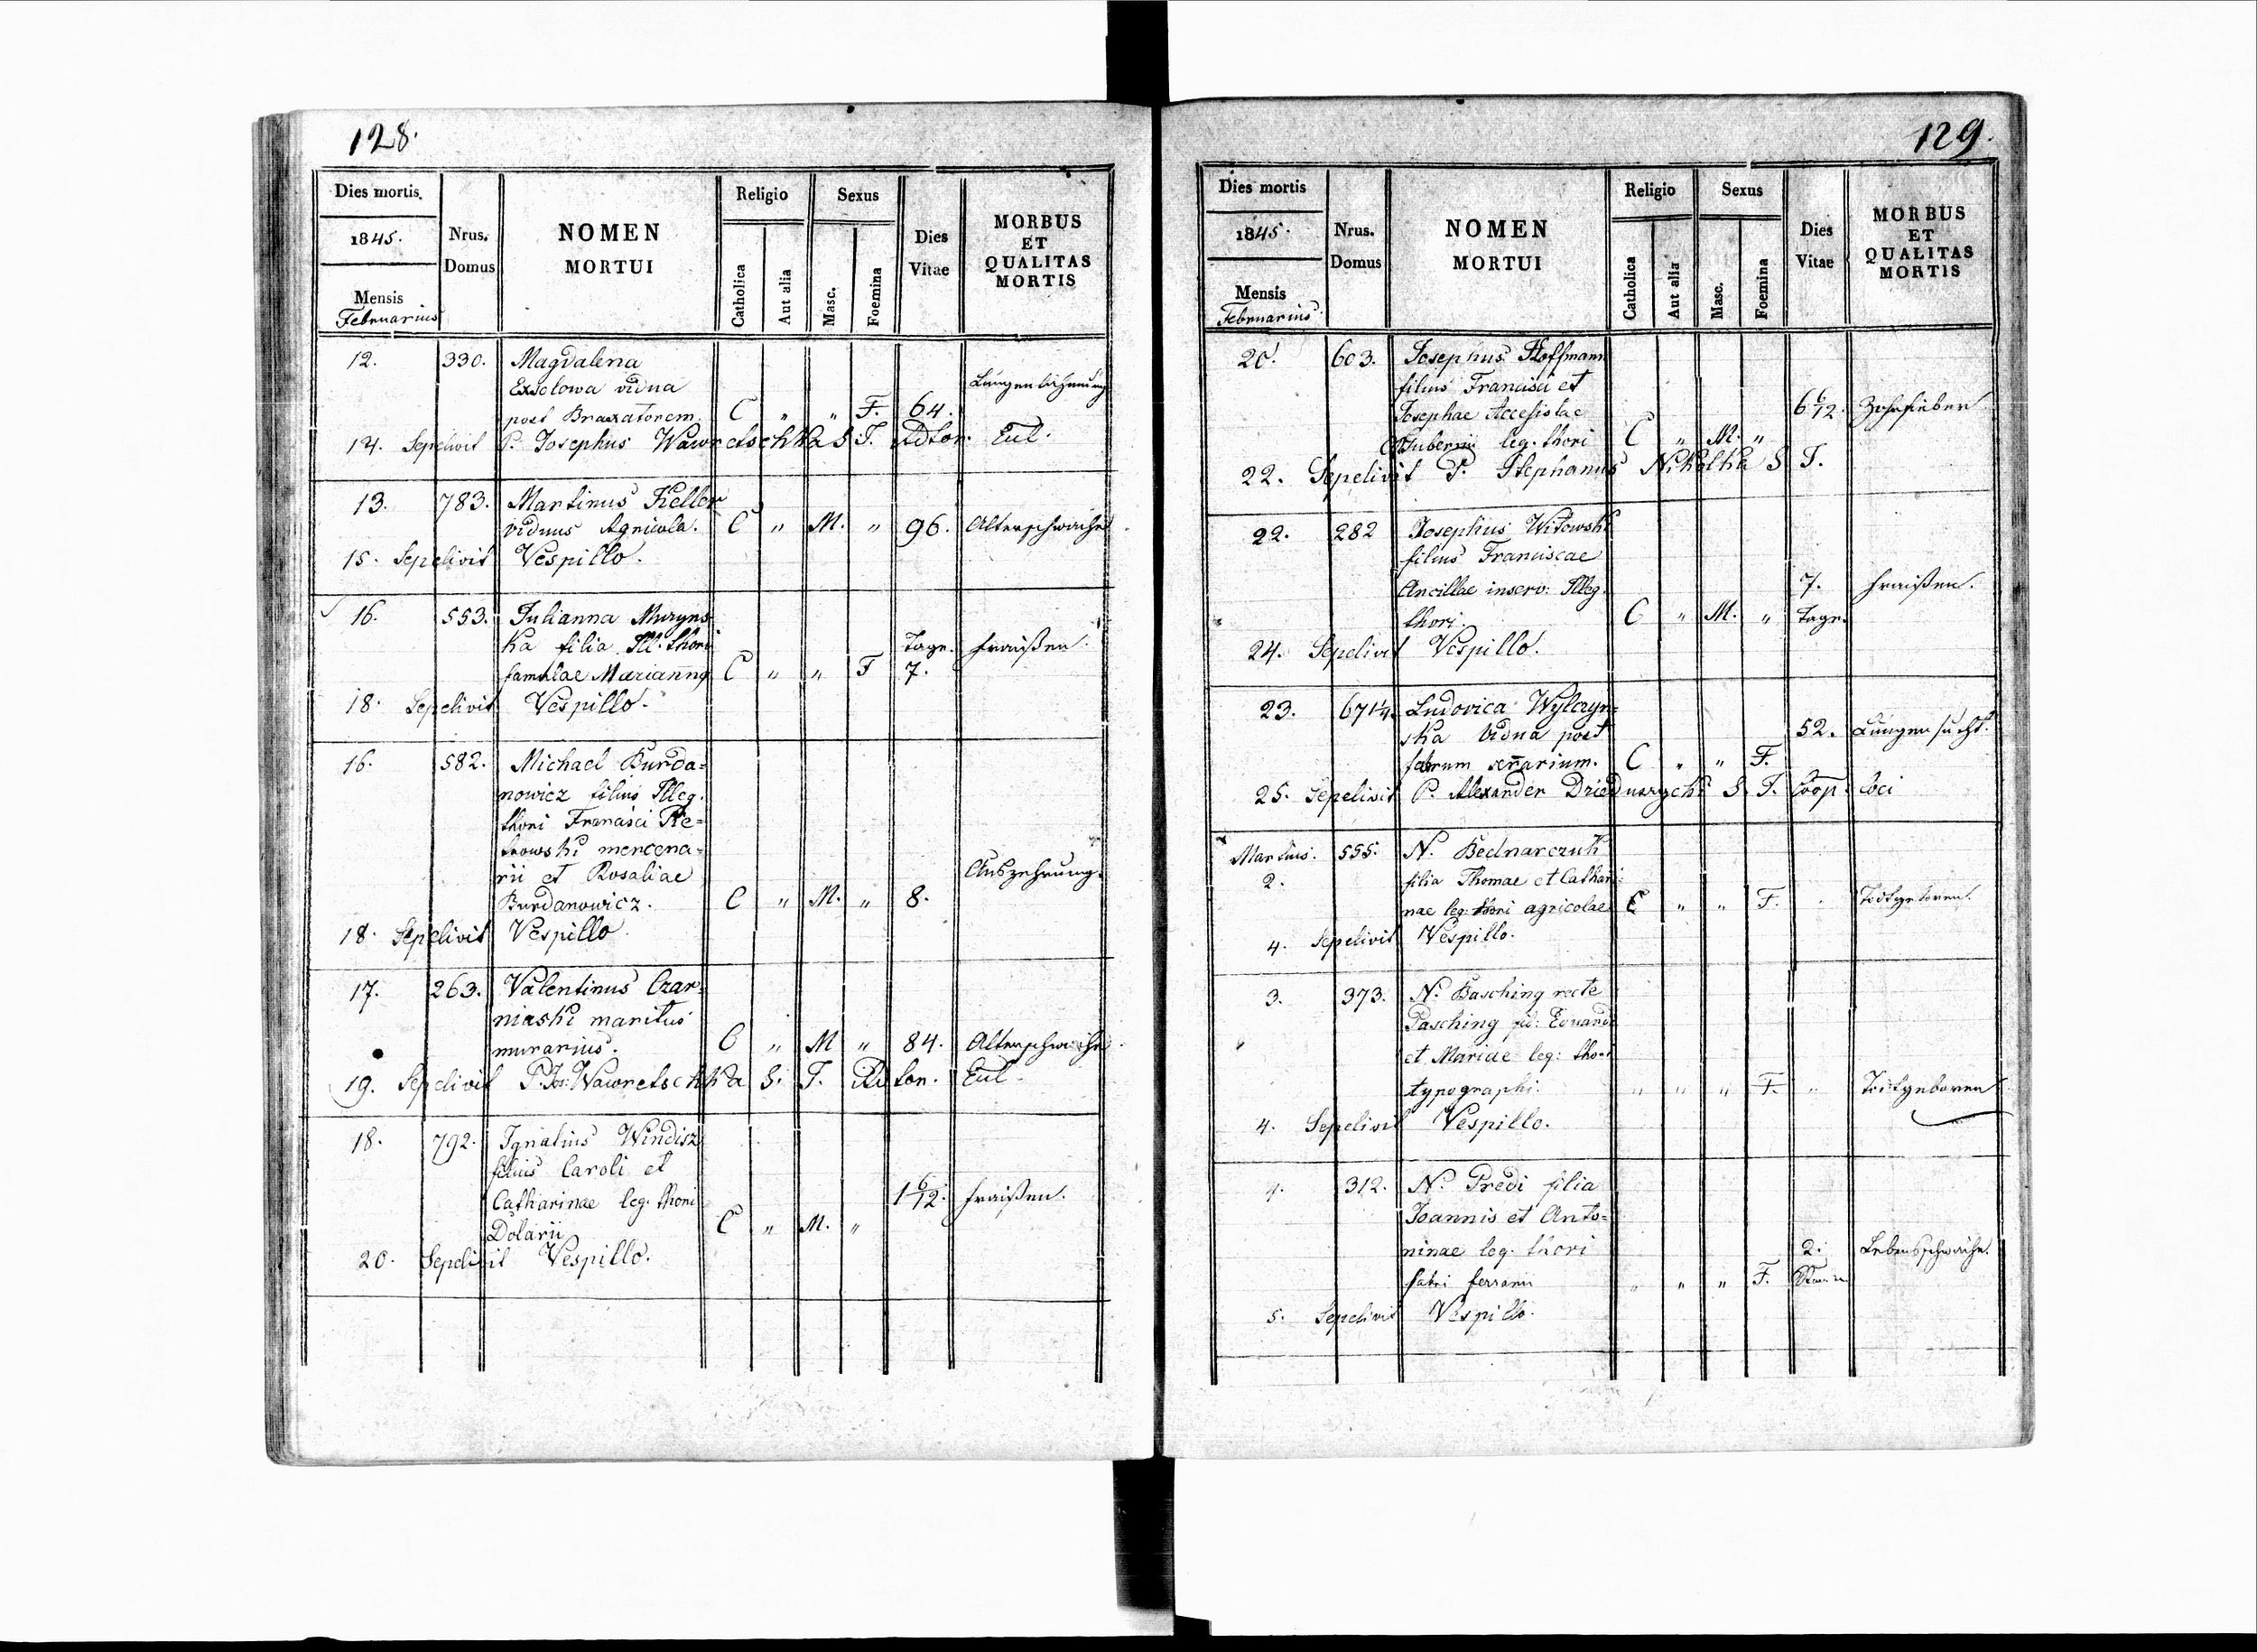 128.
Dies mortis.
1845.
Mensis
Februarius
Nrus.
Domus
NOMEN
MORTUI
Religio
Catholica
Aut alia
Sexus
Masc.
Foemina
Dies
Vitae
MORBUS
ET
QUALITAS
MORTIS
12. 330. Magdalena
vidua Lungenlähmung
post Braxatorem. C " " F. 64.
14. Sepelivit P. Josephus Wawretschka S T. Rdtor. Eul.
13. 783. Martinus Keller
viduus Agricola. C " M. " 96. Alterschwäche
15. Sepelivit Vespillo.
16. 553. Julianna Muryns
ka filia Ill. thori Tage. Fraißen.
famulae Marianna C " " F 7.
18. Sepelivit Vespillo.
16. 582. Michael Burda=
nowicz filius Illeg.
thori Francisci
mercena=
rii et Rosaliae Auszehrung.
Burdanowicz. C " M. " 8.
18. Sepelivit Vespillo
17. 263. Valentinus Czar=
niaski maritus
murarius. C " M " 84. Alterschwäche.
19. Sepelivit P. Jos: Wawretschka S. T. Rdtor. Eul.
18. 792. Ignatius Windisz
filius Caroli et
Catharinae leg. thori 1 6/12. Fraißen.
Dolarii C " M. "
20. Sepelivit Vespillo.
129.
Dies mortis
1845.
Mensis
Februarius
Nrus.
Domus
NOMEN
MORTUI
Religio
Catholica
Aut alia
Sexus
Masc.
Foemina
Dies
Vitae
MORBUS
ET
QUALITAS
MORTIS
20. 603. Josephus Hoffmann
filius Francisci et
Josephae Accesistae 6 6/12. Zehrfieber
leg. thori C " M. "
22. Sepelivit P. Stephanus Nikolka S T.
22. 282 Josephus Witowski
filius Franciscae
Ancillae inserv: Illeg. 7. Fraißen.
thori. C " M. " Tage.
24. Sepelivit Vespillo.
23. 671/4. Ludovica Wylczyn=
ska Vidua post 52. Lungensucht.
fabrum serrarium. C " " F.
25. Sepelivit P. Alexander Dzieduszycki S. T. Coop. loci
Martius. 555. N. Bednarczuk
2. filia Thomae et Cathari=
nae leg: thori agricolae C " " F. Todtgeboren.
4. Sepelivit Vespillo.
3. 373. N. Basching recte
Pasching fil: Eduardi
et Mariae leg: thori
typographi. " " " F. " Todtgeboren
4. Sepelivit Vespillo.
4. 312. N. Predi filia
Joannis et Anto=
ninae leg. thori 2. Lebensschwäche.
fabri ferrarii " " " F.
5. Sepelivit Vespillo.